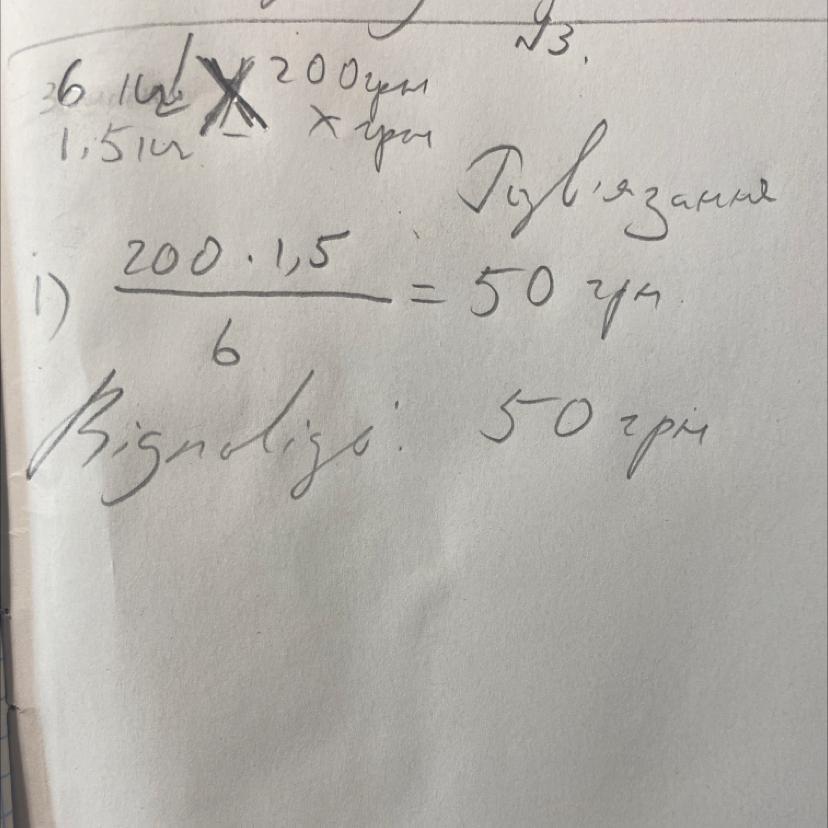 №3.
6 кг 200 грн
1,5 кг x грн
Розв'язання
1) 200 · 1,5 / 6 = 50 грн
Відповідь: 50 грн